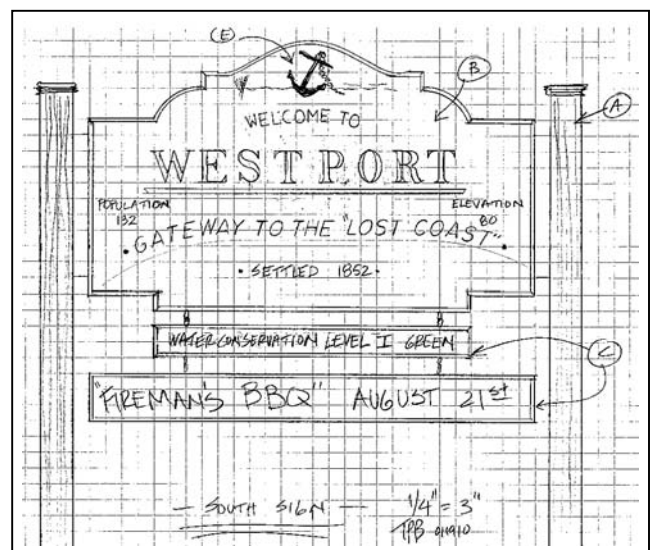 (E)
(B)
(A)
WELCOME TO
WESTPORT
POPULATION
132
ELEVATION
80
• GATEWAY TO THE "LOST COAST" •
• SETTLED 1852 •
WATER CONSERVATION LEVEL I GREEN
(C)
"FIREMAN'S BBQ" AUGUST 21st
— SOUTH SIGN —
1/4" = 3"
TPB 011910